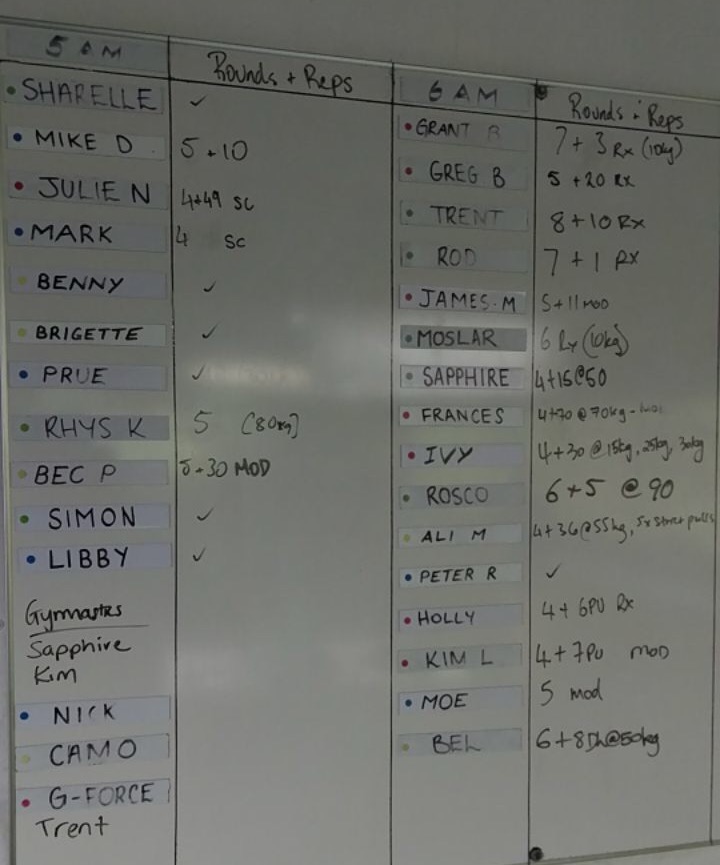 5 AM Rounds + Reps
SHARELLE ✓
MIKE D 5 + 10
JULIE N 4+49 SC
MARK 4 SC
BENNY ✓
BRIGETTE ✓
PRUE ✓
RHYS K 5 (80kg)
BEC P 5+30 MOD
SIMON ✓
LIBBY ✓
Gymnastics
Sapphire
Kim
NICK
CAMO
G-FORCE
Trent
6 AM Rounds + Reps
GRANT B 7 + 3 Rx (10kg)
GREG B 5 +20 Rx
TRENT 8+10 Rx
ROD 7 + 1 Rx
JAMES.M 5+11 MOD
MOSLAR 6 Rx (10kg)
SAPPHIRE 4+15@50
FRANCES 4+30 @ 70kg -
IVY 4+30 @ 15kg, 25kg, 30kg
ROSCO 6+5 @ 90
ALI M 4+36@55kg, 5x strict pulls
PETER R ✓
HOLLY 4+ 6PU Rx
KIM L 4+7PU MOD
MOE 5 mod
BEL 6+8DL@50kg